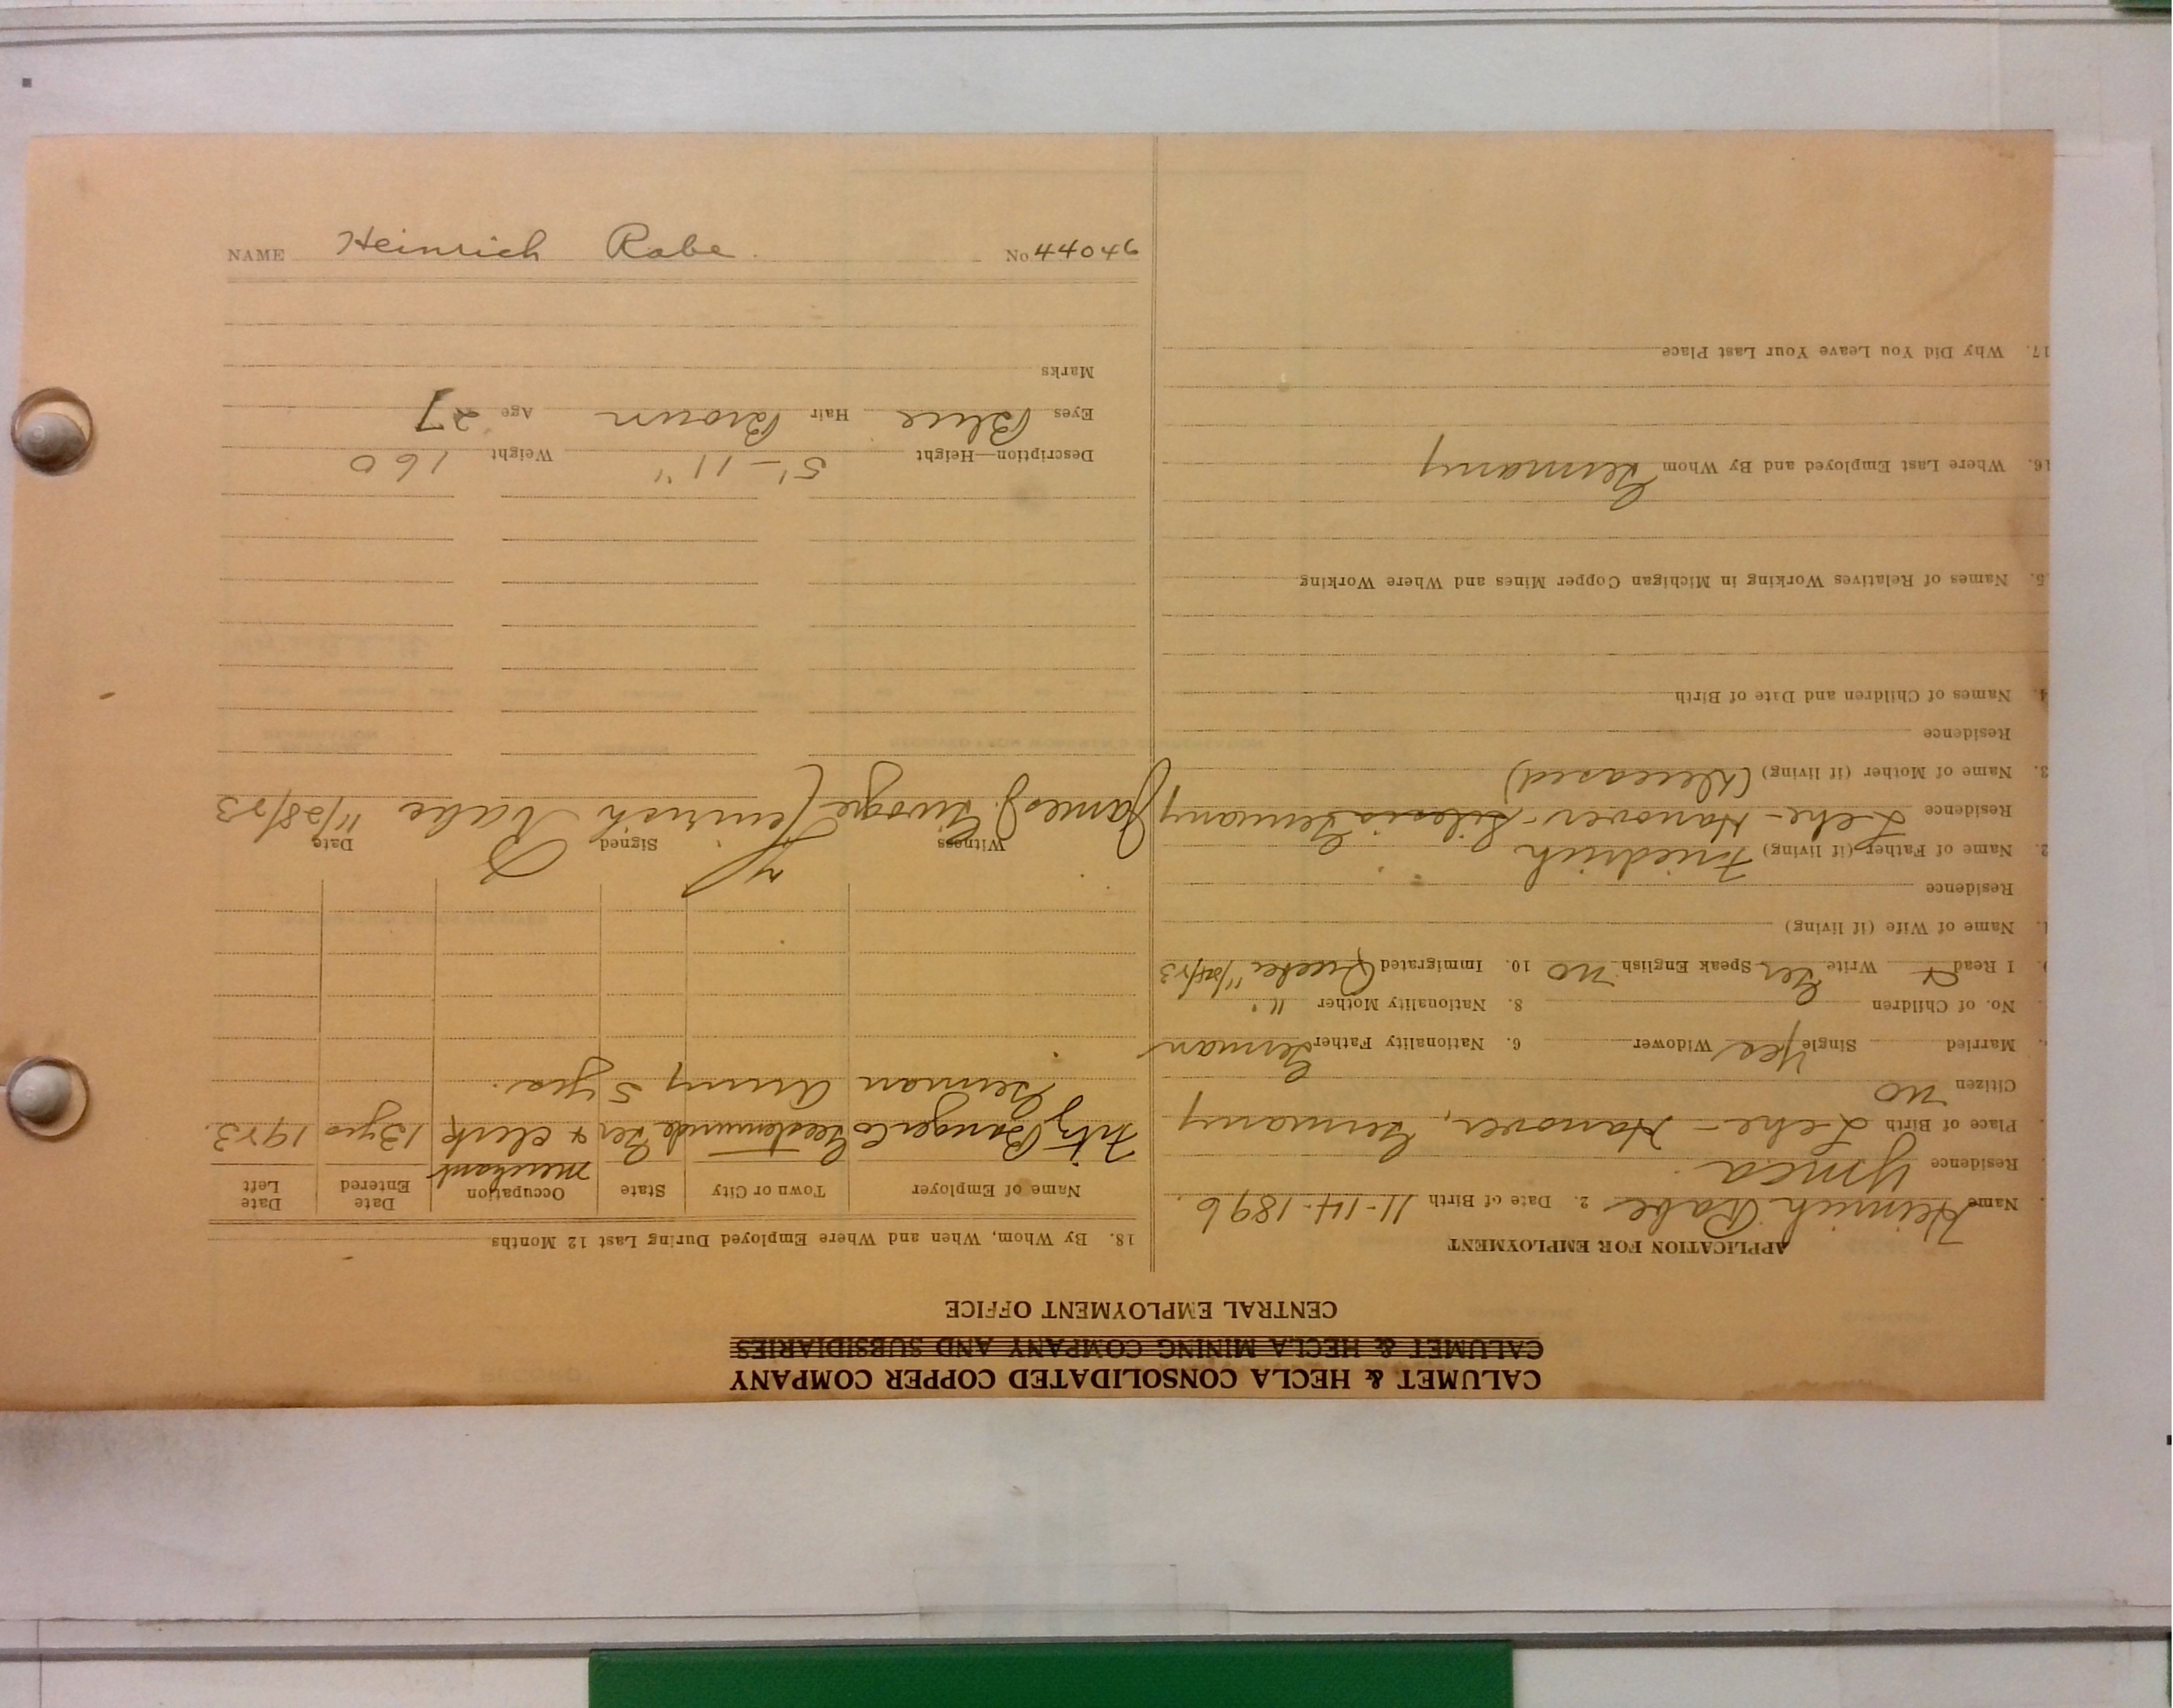 CALUMET & HECLA CONSOLIDATED COPPER COMPANY
CALUMET & HECLA MINING COMPANY AND SUBSIDIARIES
CENTRAL EMPLOYMENT OFFICE
APPLICATION FOR EMPLOYMENT
Name Heinrich Rabe 2. Date of Birth 11-14-1896.
Residence Ymca
Place of Birth Lehe - Hanover, Germany
Citizen no
Married Single Yes Widower 6. Nationality Father German
No. of Children 8. Nationality Mother "
I Read & Write Ger Speak English no 10. Immigrated Quebec 11/25/23
Name of Wife (if living)
Residence
2. Name of Father (if living) Friedrich
Residence Lehe - Hanover - Silesia Germany
3. Name of Mother (if living) (Deceased)
Residence
4. Names of Children and Date of Birth
5. Names of Relatives Working in Michigan Copper Mines and Where Working
16. Where Last Employed and By Whom Germany
17. Why Did You Leave Your Last Place
18. By Whom, When and Where Employed During Last 12 Months
Name of Employer Town or City State Occupation Date Entered Date Left
merchant
Fritz Co Geestemunde Ger & clerk 13 yrs 1923.
German Army 5 yrs.
Witness Signed Date
James J. Heinrich Rabe 11/28/23
Description—Height 5'-11" Weight 160
Eyes Blue Hair Brown Age 27
Marks
NAME Heinrich Rabe. No 44046